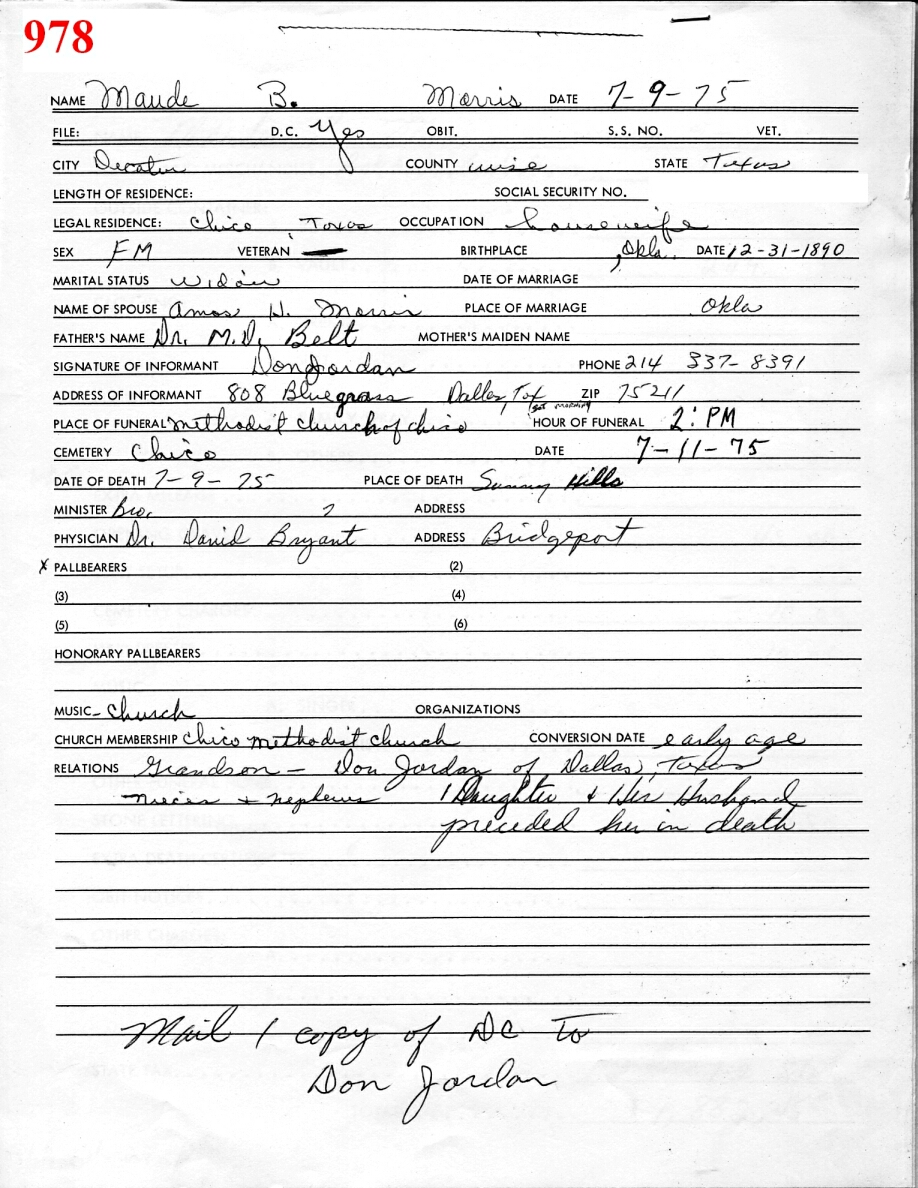 978
NAME Maude B. Morris DATE 7-9-75
FILE: D.C. Yes OBIT. S.S. NO. VET.
CITY Decatur COUNTY wise STATE Texas
LENGTH OF RESIDENCE: SOCIAL SECURITY NO.
LEGAL RESIDENCE: Chico Texas OCCUPATION housewife
SEX FM VETERAN BIRTHPLACE , Okla. DATE 12-31-1890
MARITAL STATUS widow DATE OF MARRIAGE
NAME OF SPOUSE Amos H. Morris PLACE OF MARRIAGE Okla
FATHER'S NAME Dr. M.D. Belt MOTHER'S MAIDEN NAME
SIGNATURE OF INFORMANT Don Jordan PHONE 214 337-8391
ADDRESS OF INFORMANT 808 Bluegrass Dallas, Tex ZIP 75211
PLACE OF FUNERAL methodist church of chico HOUR OF FUNERAL 2: PM
CEMETERY Chico DATE 7-11-75
DATE OF DEATH 7-9-75 PLACE OF DEATH Sunny Hills
MINISTER Bro. ? ADDRESS
PHYSICIAN Dr. David Bryant ADDRESS Bridgeport
X PALLBEARERS (2)
(3) (4)
(5) (6)
HONORARY PALLBEARERS
MUSIC- Church ORGANIZATIONS
CHURCH MEMBERSHIP Chico methodist church CONVERSION DATE early age
RELATIONS Grandson - Don Jordan of Dallas, Texas
nieces + nephews 1 Daughter & Her Husband
preceded her in death
Mail 1 copy of DC To
Don Jordan